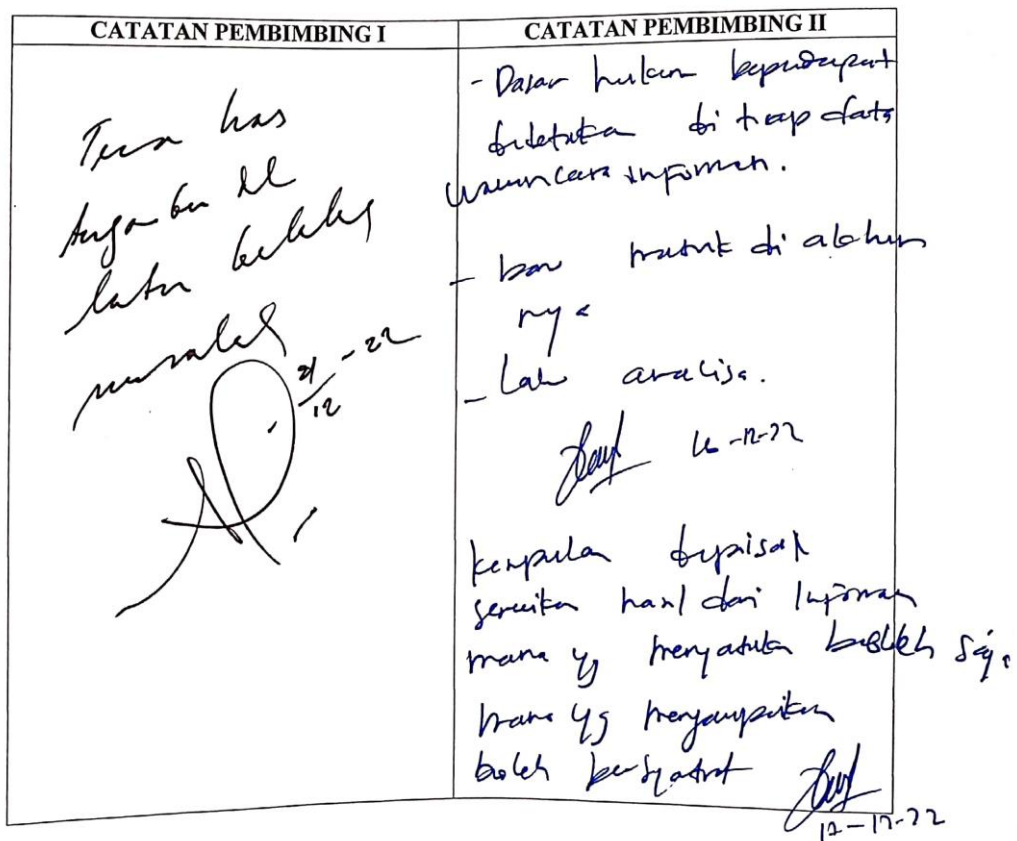 CATATAN PEMBIMBING I
has
latar belakang
masalah
21/12 - 22
CATATAN PEMBIMBING II
- Dasar hukum berpendapat
diletakan di tiap data
wawancara informan.
- baru masuk di alahun
nya
- Lalu analisa.
16-12-22
kesimpulan dipisah
sesuikan hasil dari Informan
mana yg menyatakan boleh saja
mana yg menyampaikan
boleh bersyarat
12-12-22